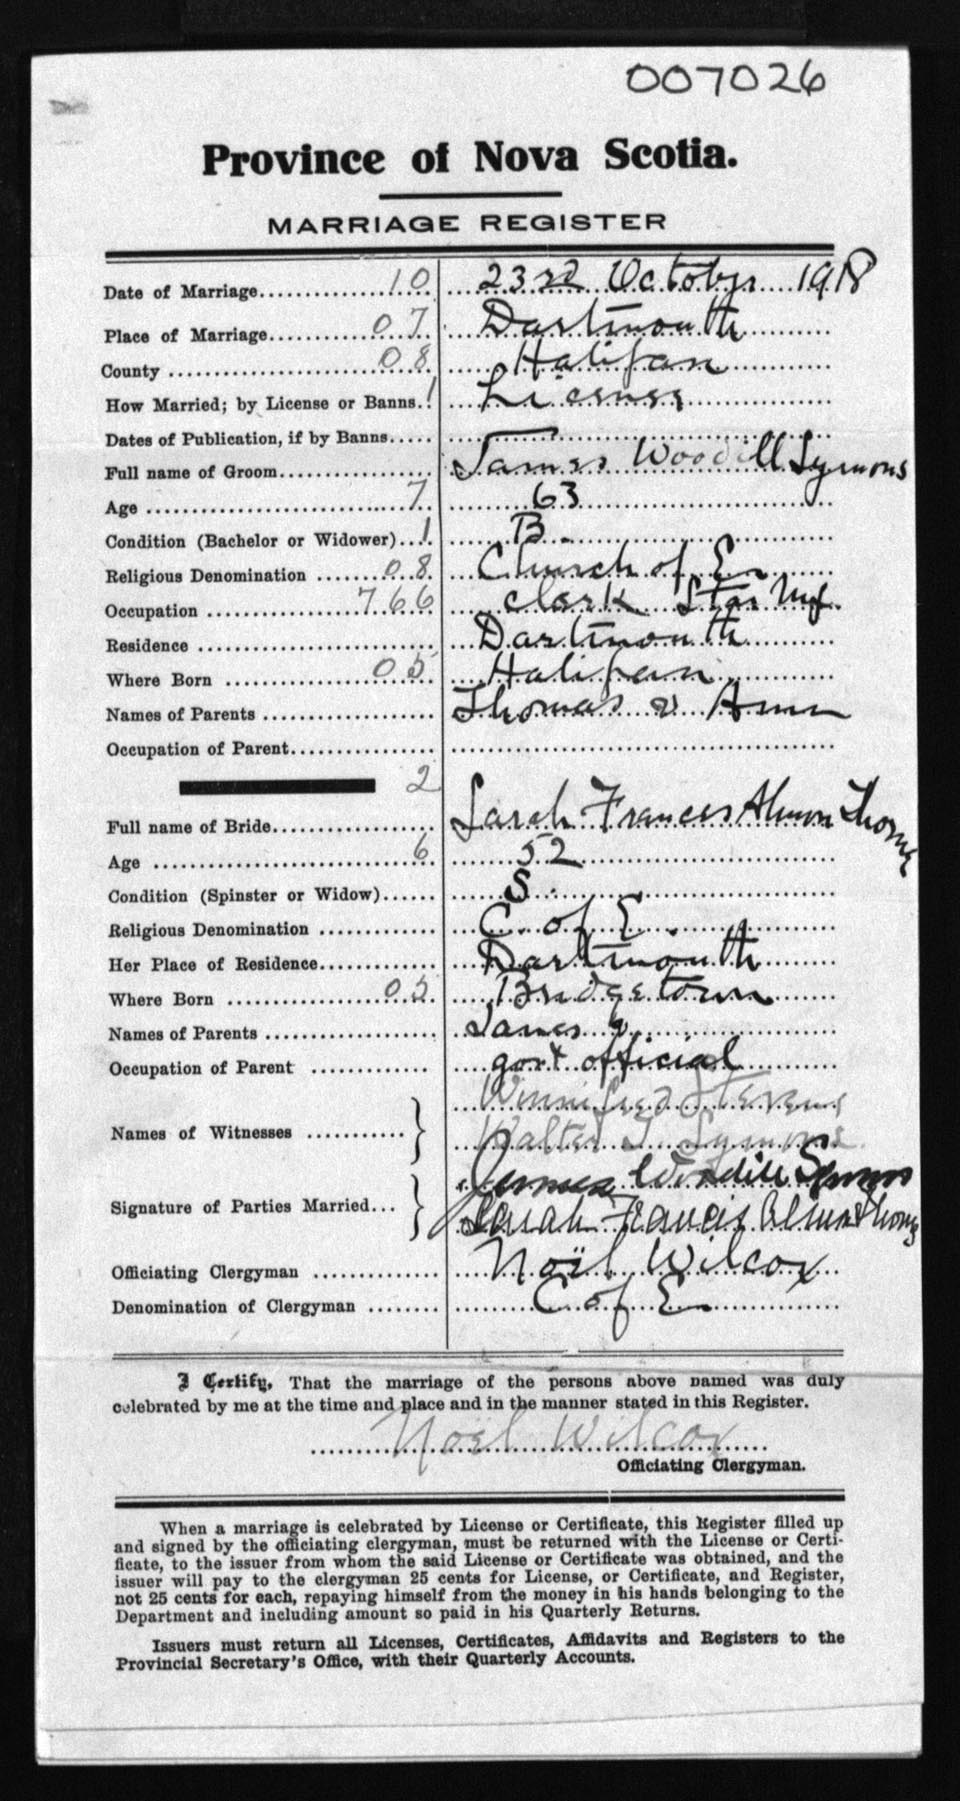 007026
Province of Nova Scotia.
MARRIAGE REGISTER
Date of Marriage 10 23rd October 1918
Place of Marriage 07 Dartmouth
County 08 Halifax
How Married; by License or Banns. 1 License
Dates of Publication, if by Banns
Full name of Groom James Woodill Symons
Age 7 63
Condition (Bachelor or Widower) 1 B.
Religious Denomination 08 Church of En
Occupation 766 clerk Star Mf.
Residence Dartmouth
Where Born 05 Halifax
Names of Parents Thomas & Ann
Occupation of Parent
2
Full name of Bride Sarah Frances Almon Thorne
Age 6 52
Condition (Spinster or Widow) S.
Religious Denomination C. of E.
Her Place of Residence Dartmouth
Where Born 05 Bridgetown
Names of Parents James &
Occupation of Parent govt official
Winnifred Stevens
Names of Witnesses
Walter J. Symons
James Woodill Symons
Signature of Parties Married
Sarah Francis Almon Thorne
Officiating Clergyman Noël Wilcox
Denomination of Clergyman C of E.
I Certify, That the marriage of the persons above named was duly
celebrated by me at the time and place and in the manner stated in this Register.
Noël Wilcox
Officiating Clergyman.
When a marriage is celebrated by License or Certificate, this Register filled up
and signed by the officiating clergyman, must be returned with the License or Certi-
ficate, to the issuer from whom the said License or Certificate was obtained, and the
issuer will pay to the clergyman 25 cents for License, or Certificate, and Register,
not 25 cents for each, repaying himself from the money in his hands belonging to the
Department and including amount so paid in his Quarterly Returns.
Issuers must return all Licenses, Certificates, Affidavits and Registers to the
Provincial Secretary's Office, with their Quarterly Accounts.